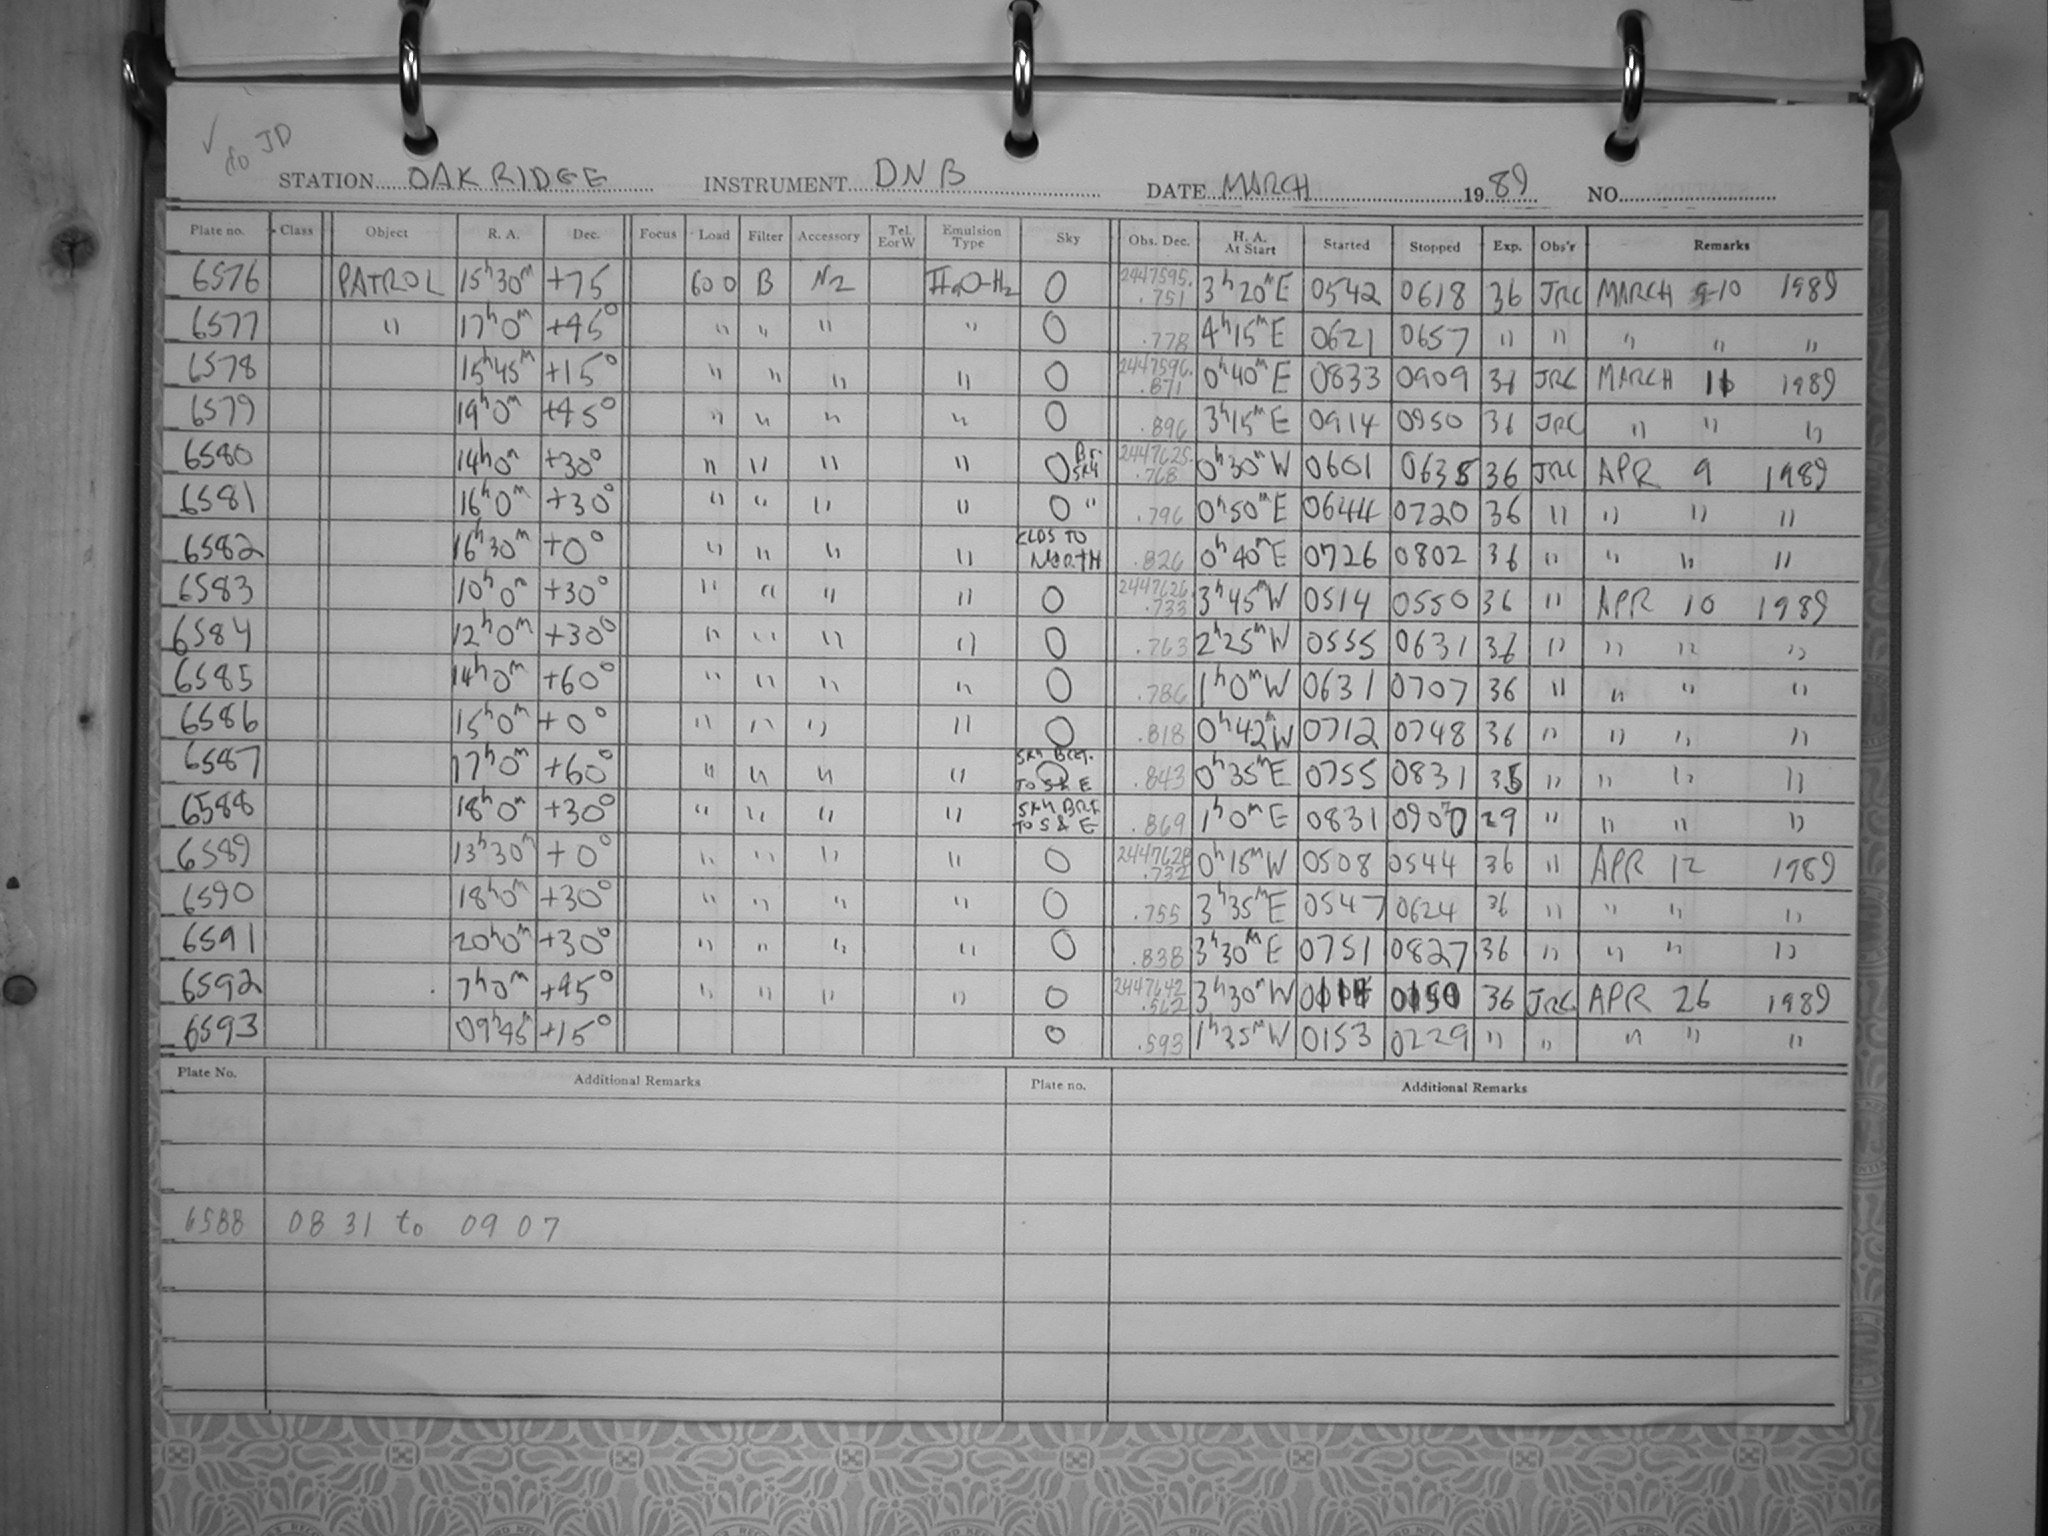 ✓ do JD
STATION OAK RIDGE INSTRUMENT DNB DATE MARCH 1989 NO.
Plate no. Class Object R. A. Dec. Focus Load Filter Accessory Tel. E or W Emulsion Type Sky Obs. Dec. H. A. At Start Started Stopped Exp. Obs'r Remarks
6576 PATROL 15h30m +75 600 B N2 IIaO-H2 O 2447595.751 3h20mE 0542 0618 36 JRC MARCH 9-10 1989
6577 " 17h0m +45° " " " " O .778 4h15mE 0621 0657 " " " " "
6578 15h45m +15° " " " " O 2447596.871 0h40mE 0833 0909 36 JRC MARCH 11 1989
6579 19h0m +45° " " " " O .896 3h15mE 0914 0950 36 JRC " " "
6580 14h0m +30° " " " " O Br. SKY 2447625.768 0h30mW 0601 0635 36 JRC APR 9 1989
6581 16h0m +30° " " " " O " .796 0h50mE 0644 0720 36 " " " "
6582 16h30m +0° " " " " CLDS TO NORTH .826 0h40mE 0726 0802 36 " " " "
6583 10h0m +30° " " " " O 2447626.733 3h45mW 0514 0550 36 " APR 10 1989
6584 12h0m +30° " " " " O .763 2h25mW 0555 0631 36 " " " "
6585 14h0m +60° " " " " O .786 1h0mW 0631 0707 36 " " " "
6586 15h0m +0° " " " " O .818 0h42mW 0712 0748 36 " " " "
6587 17h0m +60° " " " " SKY BRT. O TO S & E .843 0h35mE 0755 0831 36 " " " "
6588 18h0m +30° " " " " SKY BRT TO S & E .869 1h0mE 0831 0900 29 " " " "
6589 13h30m +0° " " " " O 2447628.732 0h15mW 0508 0544 36 " APR 12 1989
6590 18h0m +30° " " " " O .755 3h35mE 0547 0624 36 " " " "
6591 20h0m +30° " " " " O .838 3h30mE 0751 0827 36 " " " "
6592 7h0m +45° " " " " O 2447642.562 3h30mW 0114 0150 36 JRC APR 26 1989
6593 09h45m +15° O .593 1h35mW 0153 0229 " " " " "
Plate No. Additional Remarks Plate no. Additional Remarks
6588 08 31 to 09 07